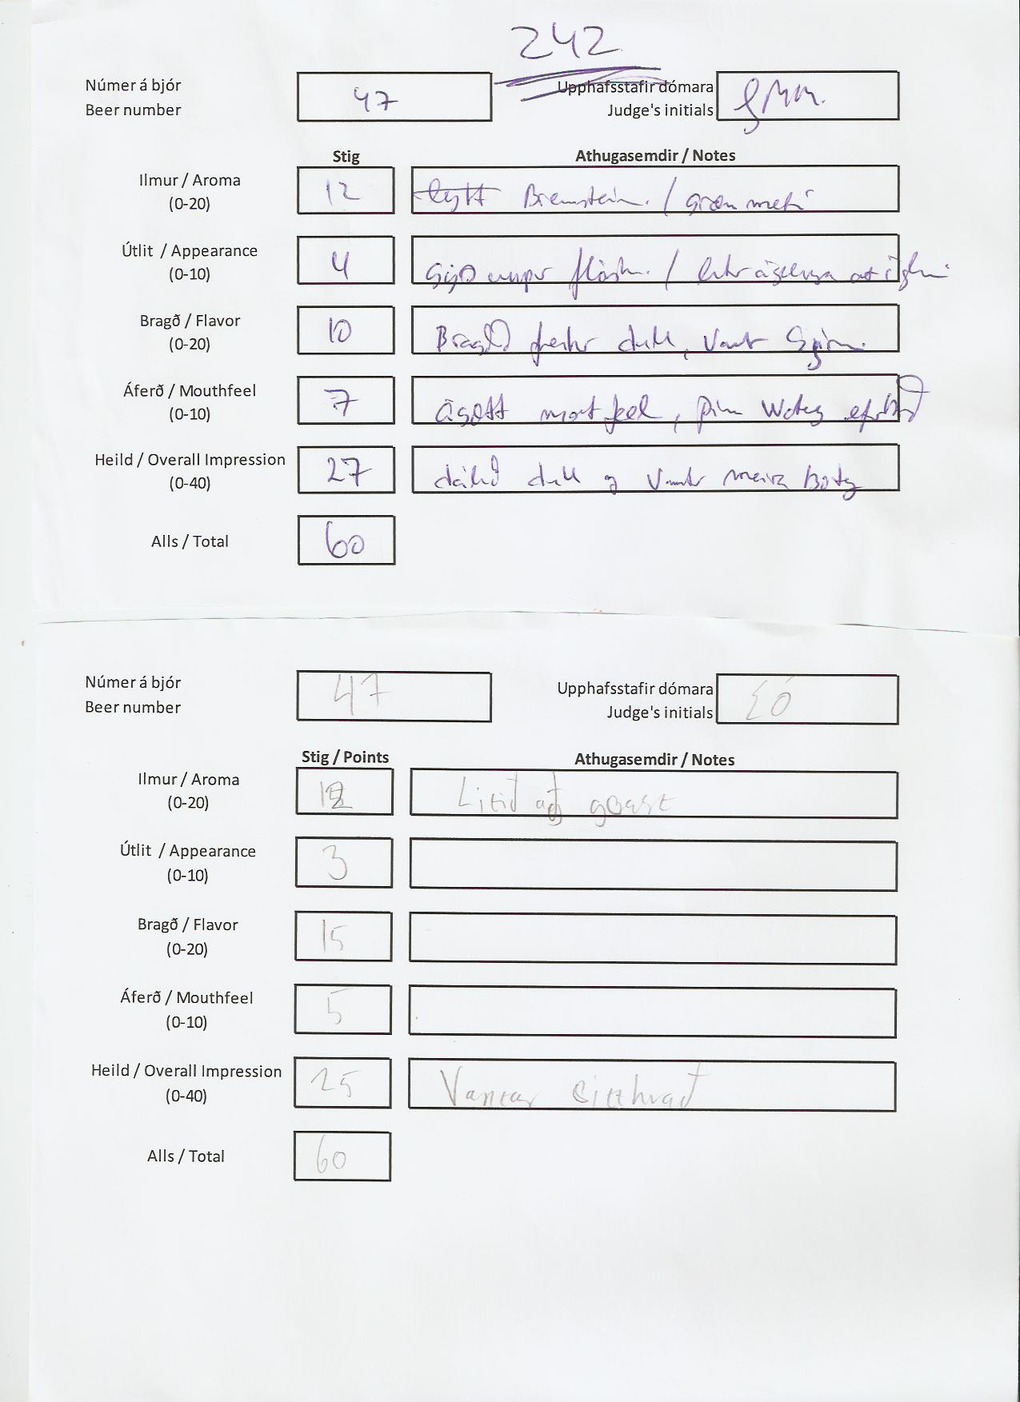 242
Númer á bjór
Beer number
47
Upphafsstafir dómara
Judge's initials
Stig
Athugasemdir / Notes
Ilmur / Aroma
(0-20)
12
Brennistein. / grænmeti
Útlit / Appearance
(0-10)
4
Bragð / Flavor
(0-20)
10
Bragð dull, vantar
Áferð / Mouthfeel
(0-10)
7
ágætt
Heild / Overall Impression
(0-40)
27
dálítið dull og vantar meira Body
Alls / Total
60
Númer á bjór
Beer number
47
Upphafsstafir dómara
Judge's initials
Stig / Points
Athugasemdir / Notes
Ilmur / Aroma
(0-20)
12
Lítið að gerast
Útlit / Appearance
(0-10)
3
Bragð / Flavor
(0-20)
15
Áferð / Mouthfeel
(0-10)
5
Heild / Overall Impression
(0-40)
25
Vantar eitthvað
Alls / Total
60